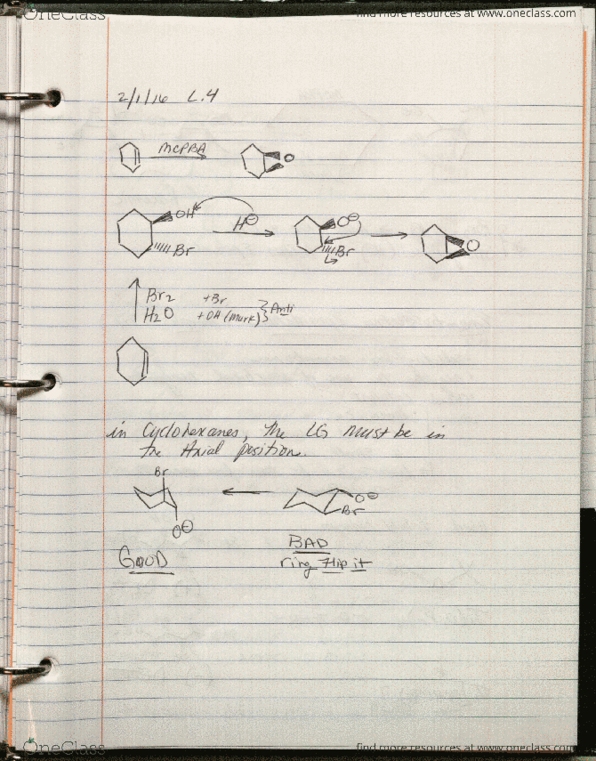 OneClass
find more resources at www.oneclass.com
2/1/16 L.4
MCPBA
O
OH
H⊖
Br
O⊖
Br
O
Br2
H2O
+Br
+OH (Mark) } Anti
in Cyclohexanes, the LG must be in
the Axial position.
Br
O⊖
O⊖
Br
GOOD
BAD
ring Flip it
OneClass
find more resources at www.oneclass.com